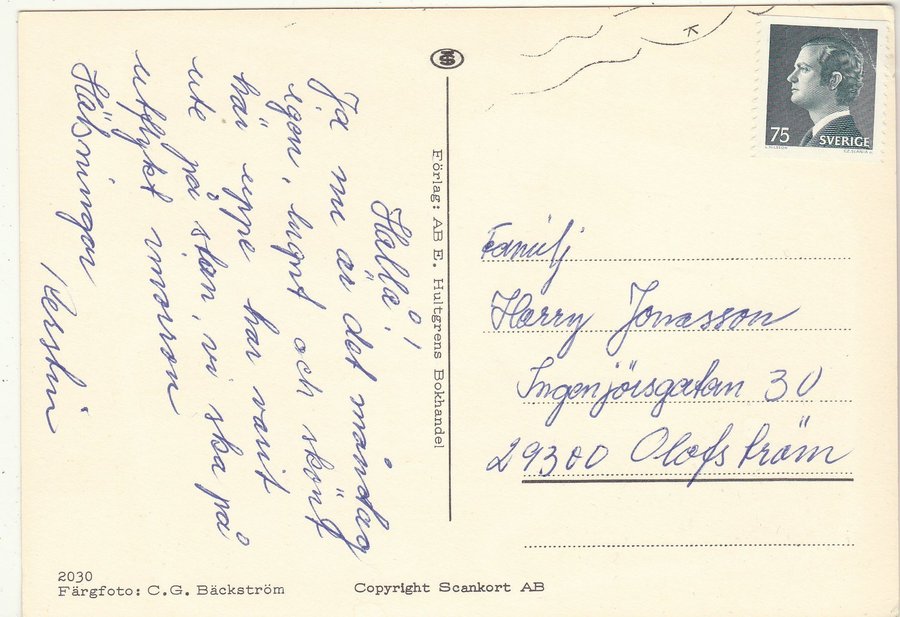 Hallå!
Ja nu är det måndag
igen, lugnt och skönt
här uppe har varit
ute på stan, vi ska på
utflykt imorron
Hälsningar
Kerstin
Förlag: AB E. Hultgrens Bokhandel
75
SVERIGE
Familj
Harry Jonasson
Ingenjörsgatan 30
29300 Olofström
2030
Färgfoto: C.G. Bäckström
Copyright Scankort AB